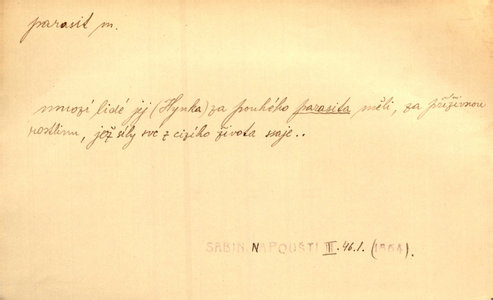 parasit m.
mnozí lidé jej (Hynka) za pouhého parasita měli, za příživnou
rostlinu, jež síly své z cizího života ssaje..
SABIN. NA POUŠTI III. 46.1. (1864).